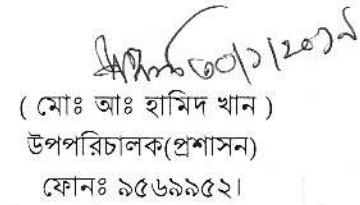 ৩০/১/২০১৮
( মোঃ আঃ হামিদ খান )
উপপরিচালক(প্রশাসন)
ফোনঃ ৯৫৬৯৯৫২।